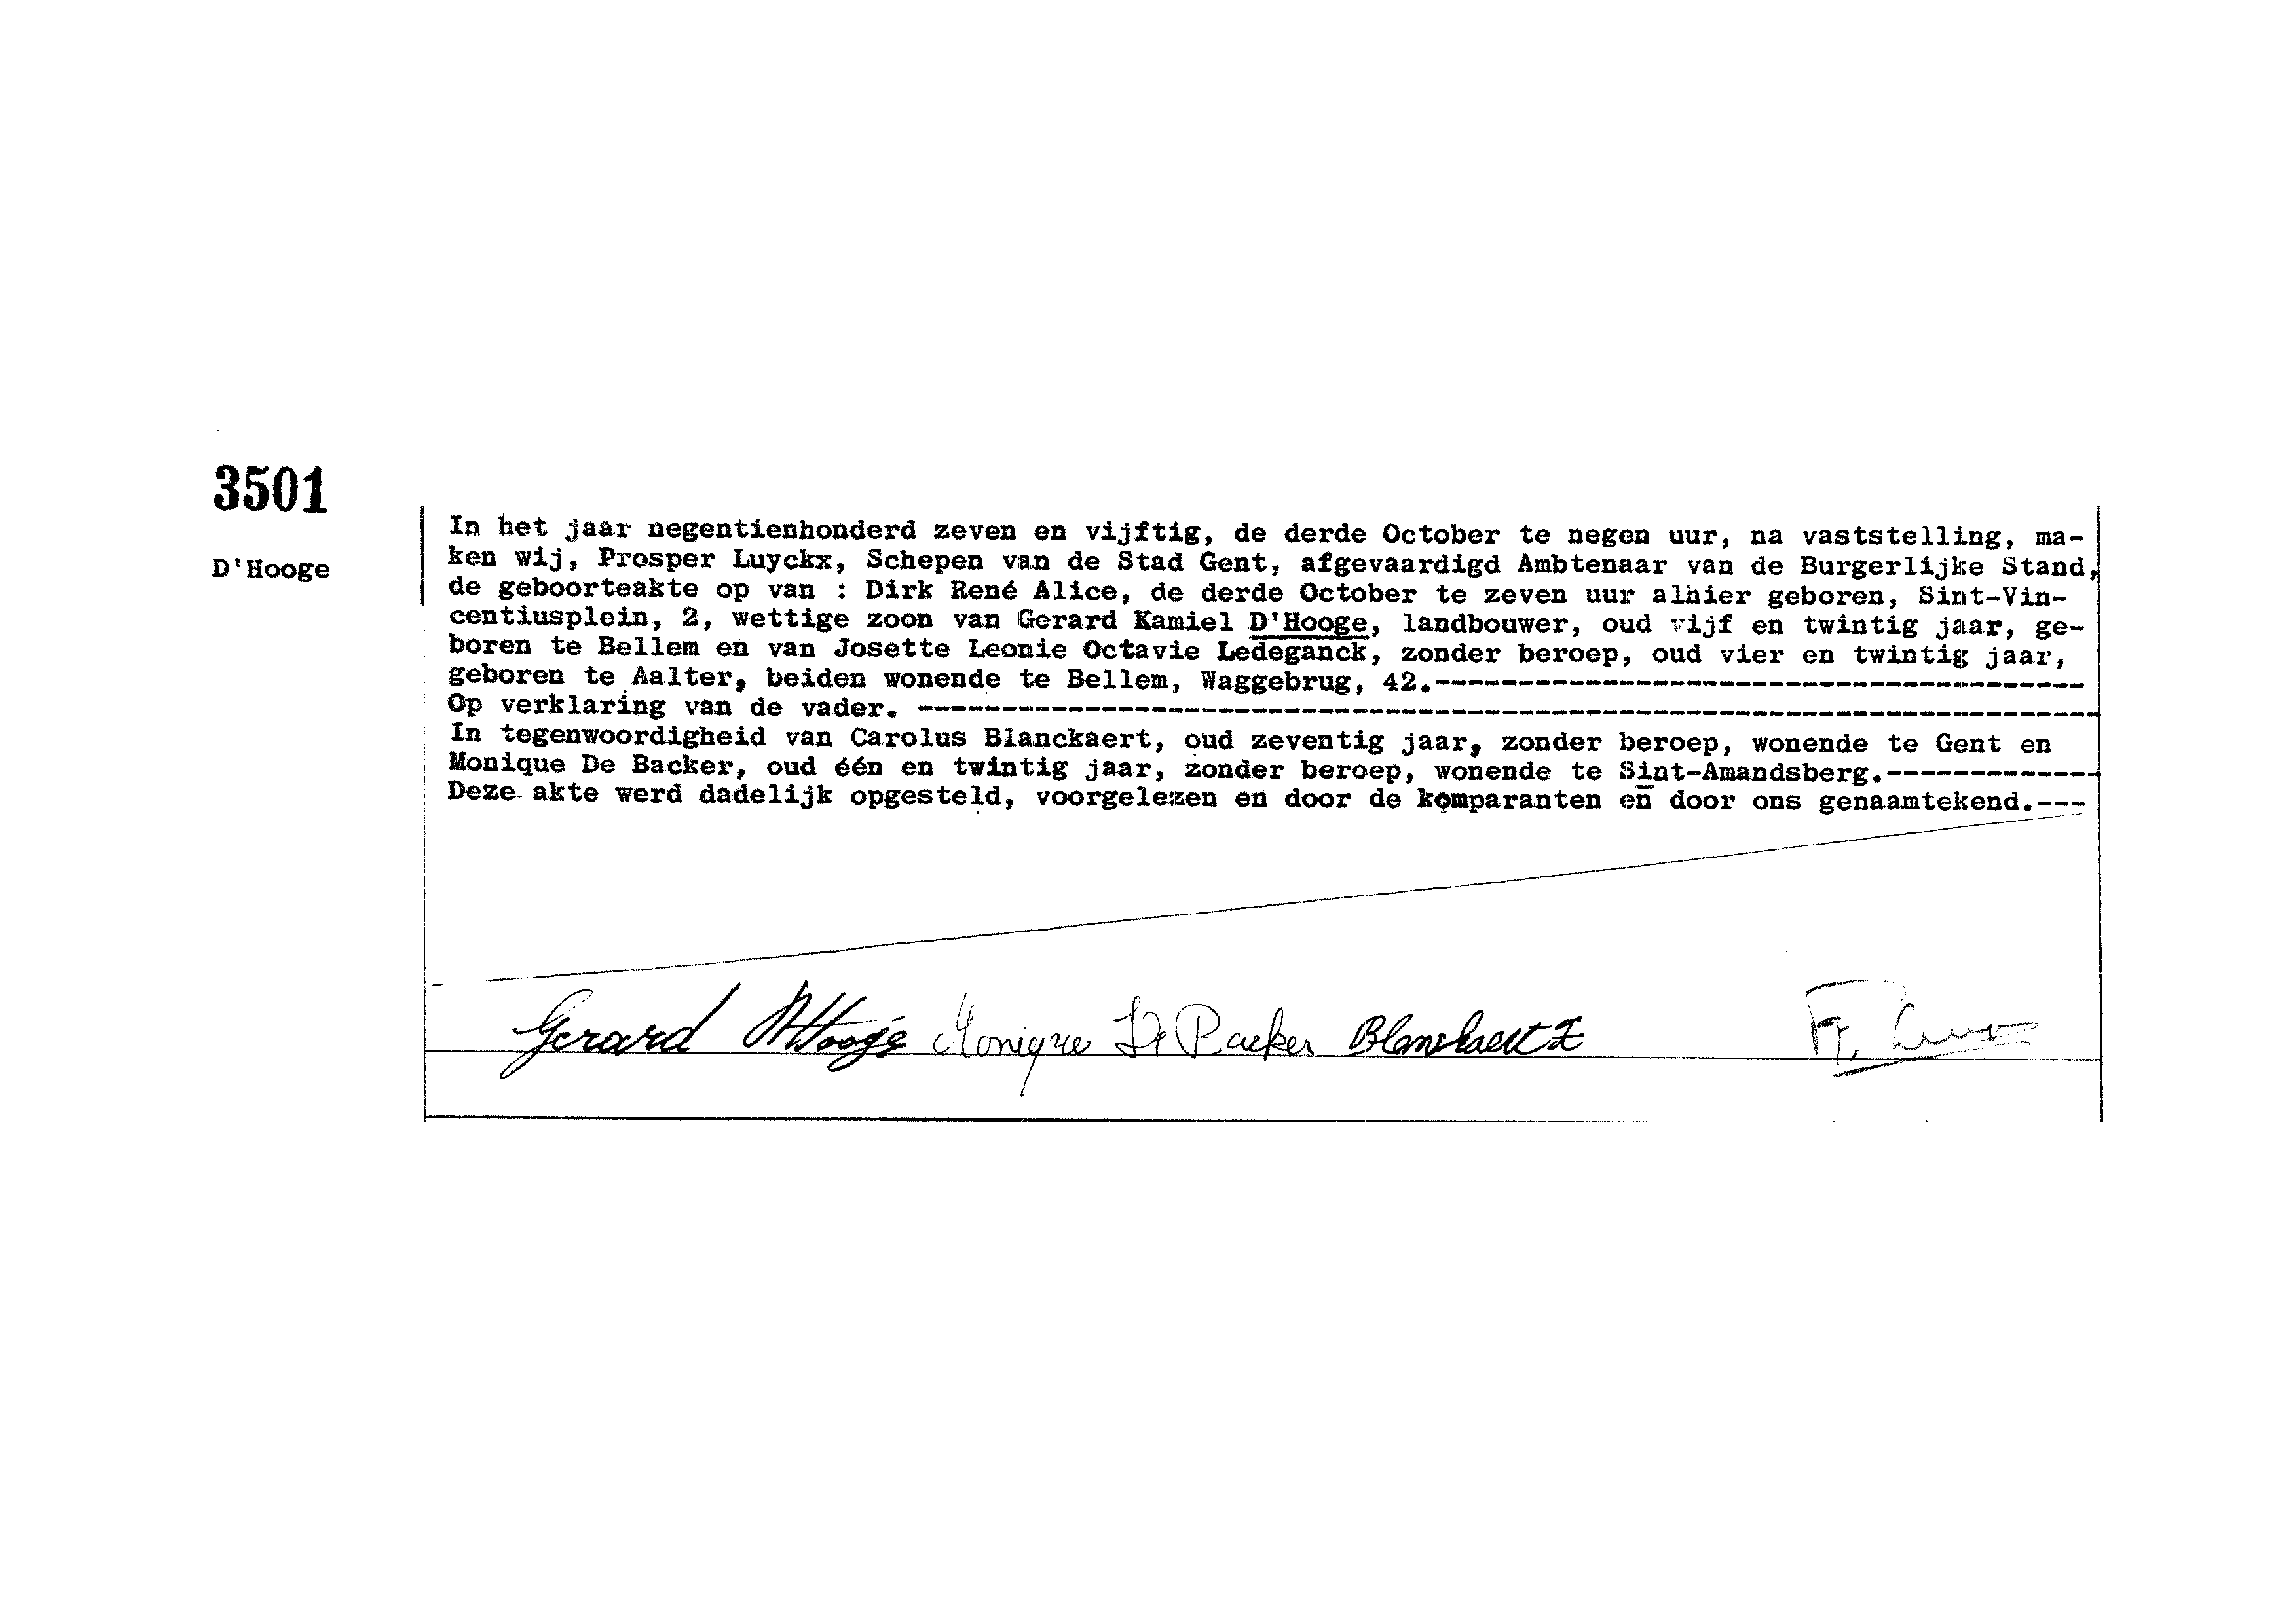 3501
D'Hooge
In het jaar negentienhonderd zeven en vijftig, de derde October te negen uur, na vaststelling, ma-
ken wij, Prosper Luyckx, Schepen van de Stad Gent, afgevaardigd Ambtenaar van de Burgerlijke Stand,
de geboorteakte op van : Dirk René Alice, de derde October te zeven uur alhier geboren, Sint-Vin-
centiusplein, 2, wettige zoon van Gerard Kamiel D'Hooge, landbouwer, oud vijf en twintig jaar, ge-
boren te Bellem en van Josette Leonie Octavie Ledeganck, zonder beroep, oud vier en twintig jaar,
geboren te Aalter, beiden wonende te Bellem, Waggebrug, 42.---------------------------------------
Op verklaring van de vader. ----------------------------------------------------------------------
In tegenwoordigheid van Carolus Blanckaert, oud zeventig jaar, zonder beroep, wonende te Gent en
Monique De Backer, oud één en twintig jaar, zonder beroep, wonende te Sint-Amandsberg.-------------
Deze akte werd dadelijk opgesteld, voorgelezen en door de komparanten en door ons genaamtekend.---
Gerard D'Hooge Monique De Backer Blanckaert